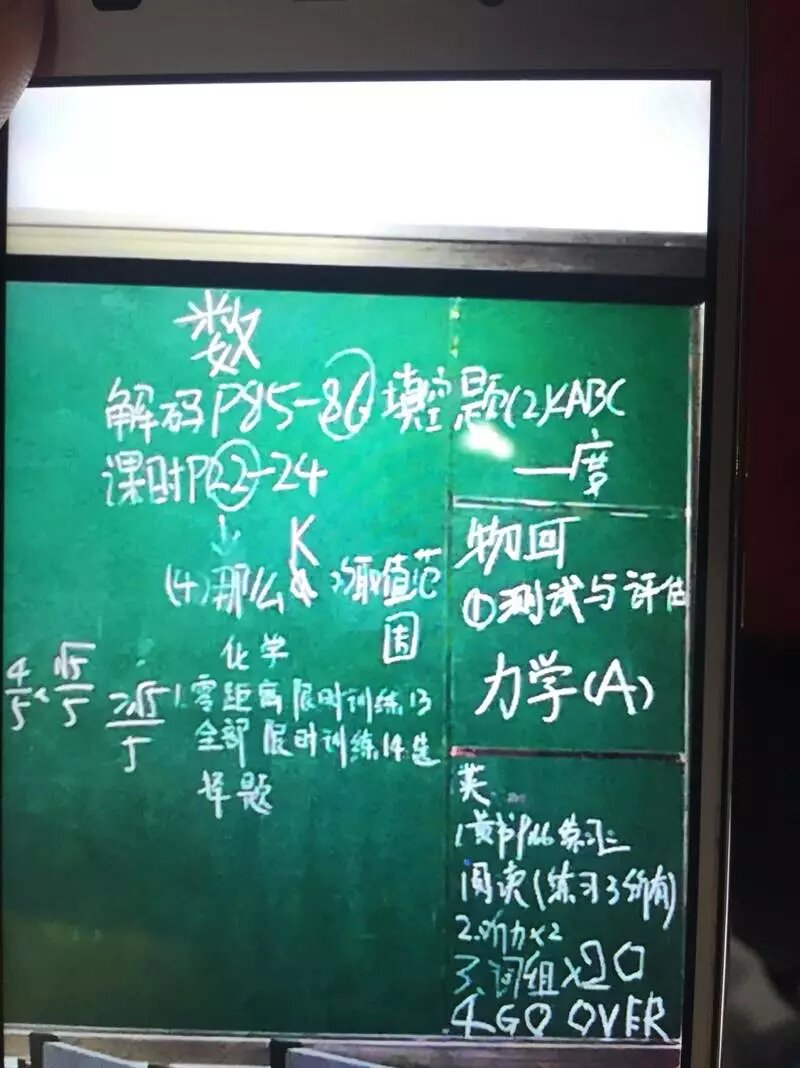 数
解码P85-86填空题(2)∠ABC
——度
课时P22-24
↓ K
(4)那么 取值范
围
化学
4/5 √5/5 2√5/5
1.零距离 限时训练13
全部 限时训练14选
择题
物回
①测试与评估
力学(A)
英
1.黄书P46练习二
阅读(练习3所有)
2.听力×2
3.词组×20
4.GO OVER